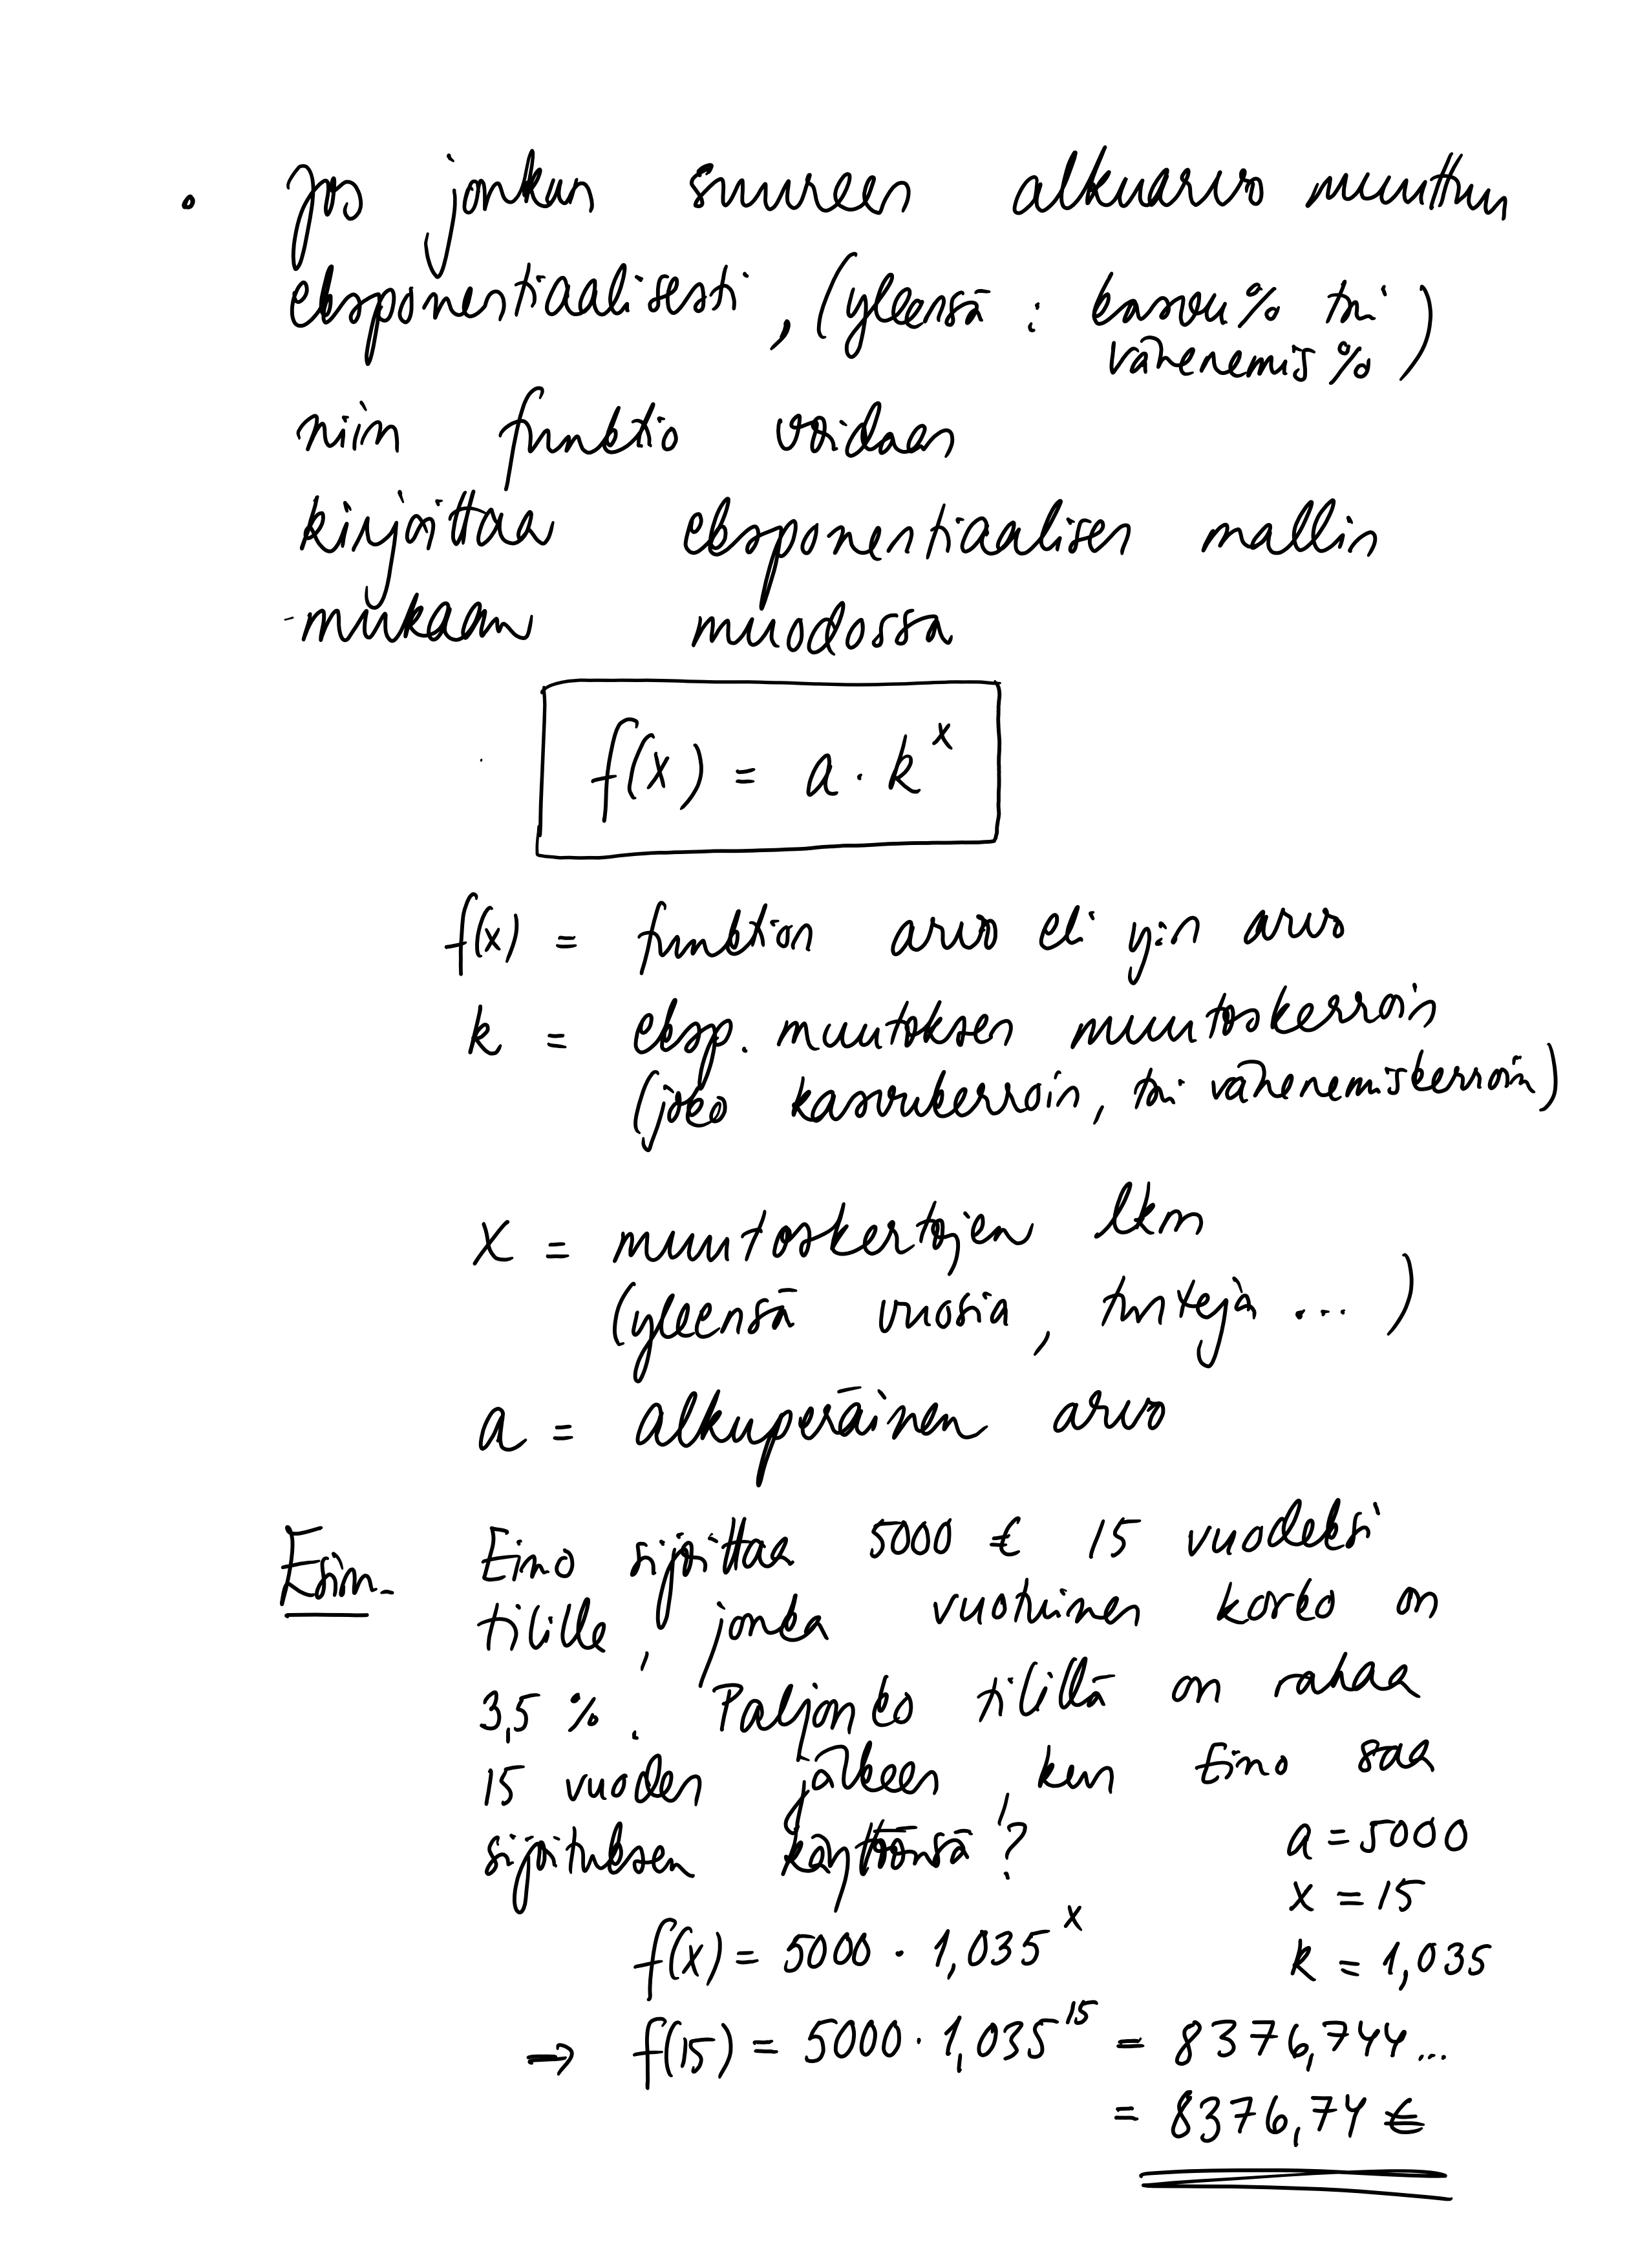 • Jos jonkun suureen alkuarvo muuttuu
eksponentiaalisesti, (yleensä : kasvu% tai
vähenemis%)
niin funktio voidaan
kirjoittaa eksponentiaalisen mallin
mukaan muodossa
f(x) = a · k^x
f(x) = funktion arvo eli y:n arvo
k = eksp. muutoksen muutoskerroin
(joko kasvukerroin, tai vähenemiskerroin)
x = muutoskertojen lkm
(yleensä vuosia, tunteja ... )
a = alkuperäinen arvo
Esim. Eino sijoittaa 5000 € 15 vuodeksi
tilille, jonka vuotuinen korko on
3,5 %. Paljonko tilillä on rahaa
15 vuoden jälkeen, kun Eino saa
sijoituksen käyttöönsä?
a = 5000
x = 15
k = 1,035
f(x) = 5000 · 1,035^x
→ f(15) = 5000 · 1,035^15 = 8376,744...
= 8376,74 €